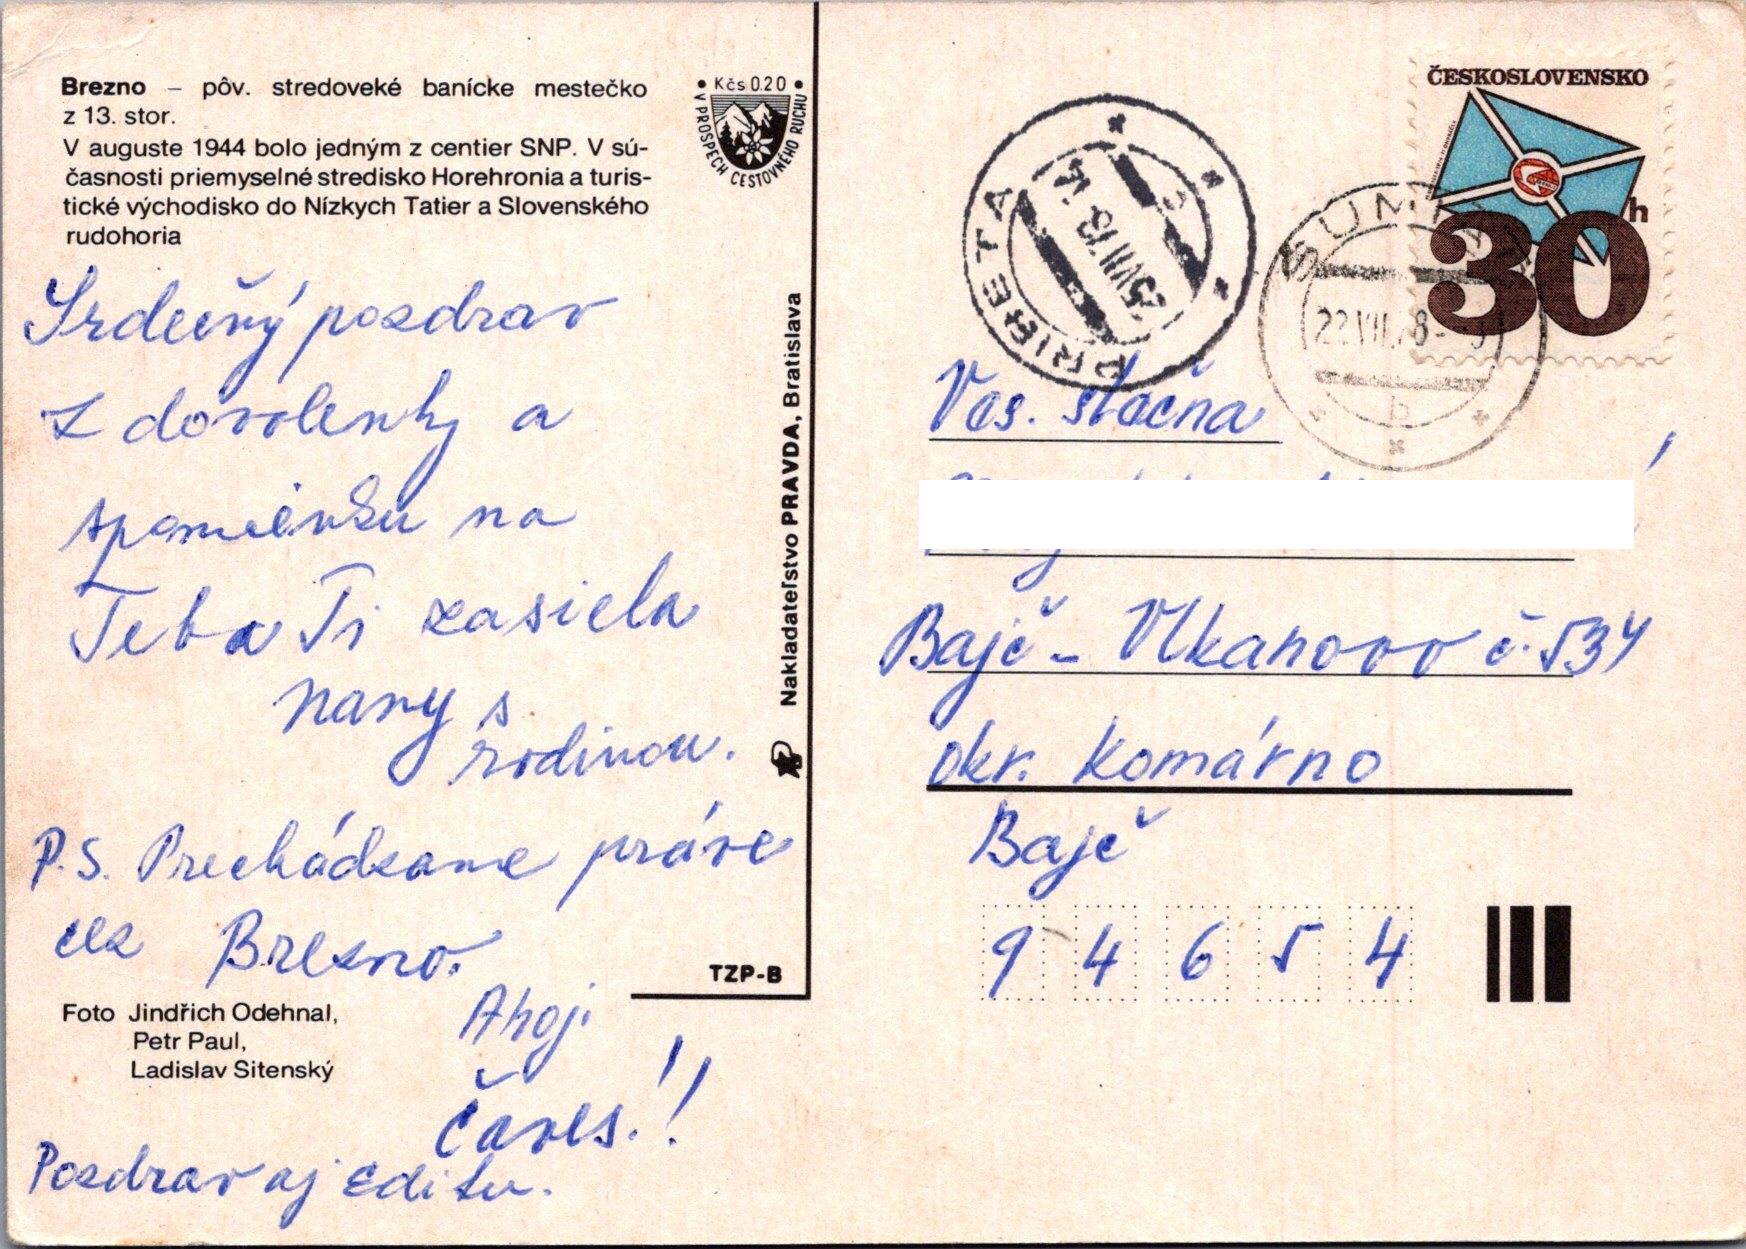 Brezno – pôv. stredoveké banícke mestečko
z 13. stor.
V auguste 1944 bolo jedným z centier SNP. V sú-
časnosti priemyselné stredisko Horehronia a turis-
tické východisko do Nízkych Tatier a Slovenského
rudohoria
Kčs 0.20
V PROSPECH CESTOVNÉHO RUCHU
Srdečný pozdrav
z dovolenky a
spomienku na
Teba Ti zasiela
nany s
rodinou.
P.S. Prechádzame práve
cez Brezno.
Ahoj.
Čaves.!!
Pozdrav aj Editu.
Foto Jindřich Odehnal,
Petr Paul,
Ladislav Sitenský
TZP-B
Nakladateľstvo PRAVDA, Bratislava
PRIBETA
25 VII 78-14
ČESKOSLOVENSKO
30h
22.VII.78
b
Vás. slečna
Bajč - Vlkanovo č. 534
okr. Komárno
Bajč
9 4 6 5 4